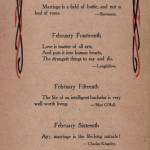 Marriage is a field of battle, and not a
bed of roses.
—Stevenson.
February Fourteenth
Love is master of all arts,
And puts it into human hearts,
The strangest things to say and do.
—Longfellow.
February Fifteenth
The life of an intelligent bachelor is very
well worth living.
February Sixteenth
Ay, marriage is the life-long miracle!
—Charles Kingsley.